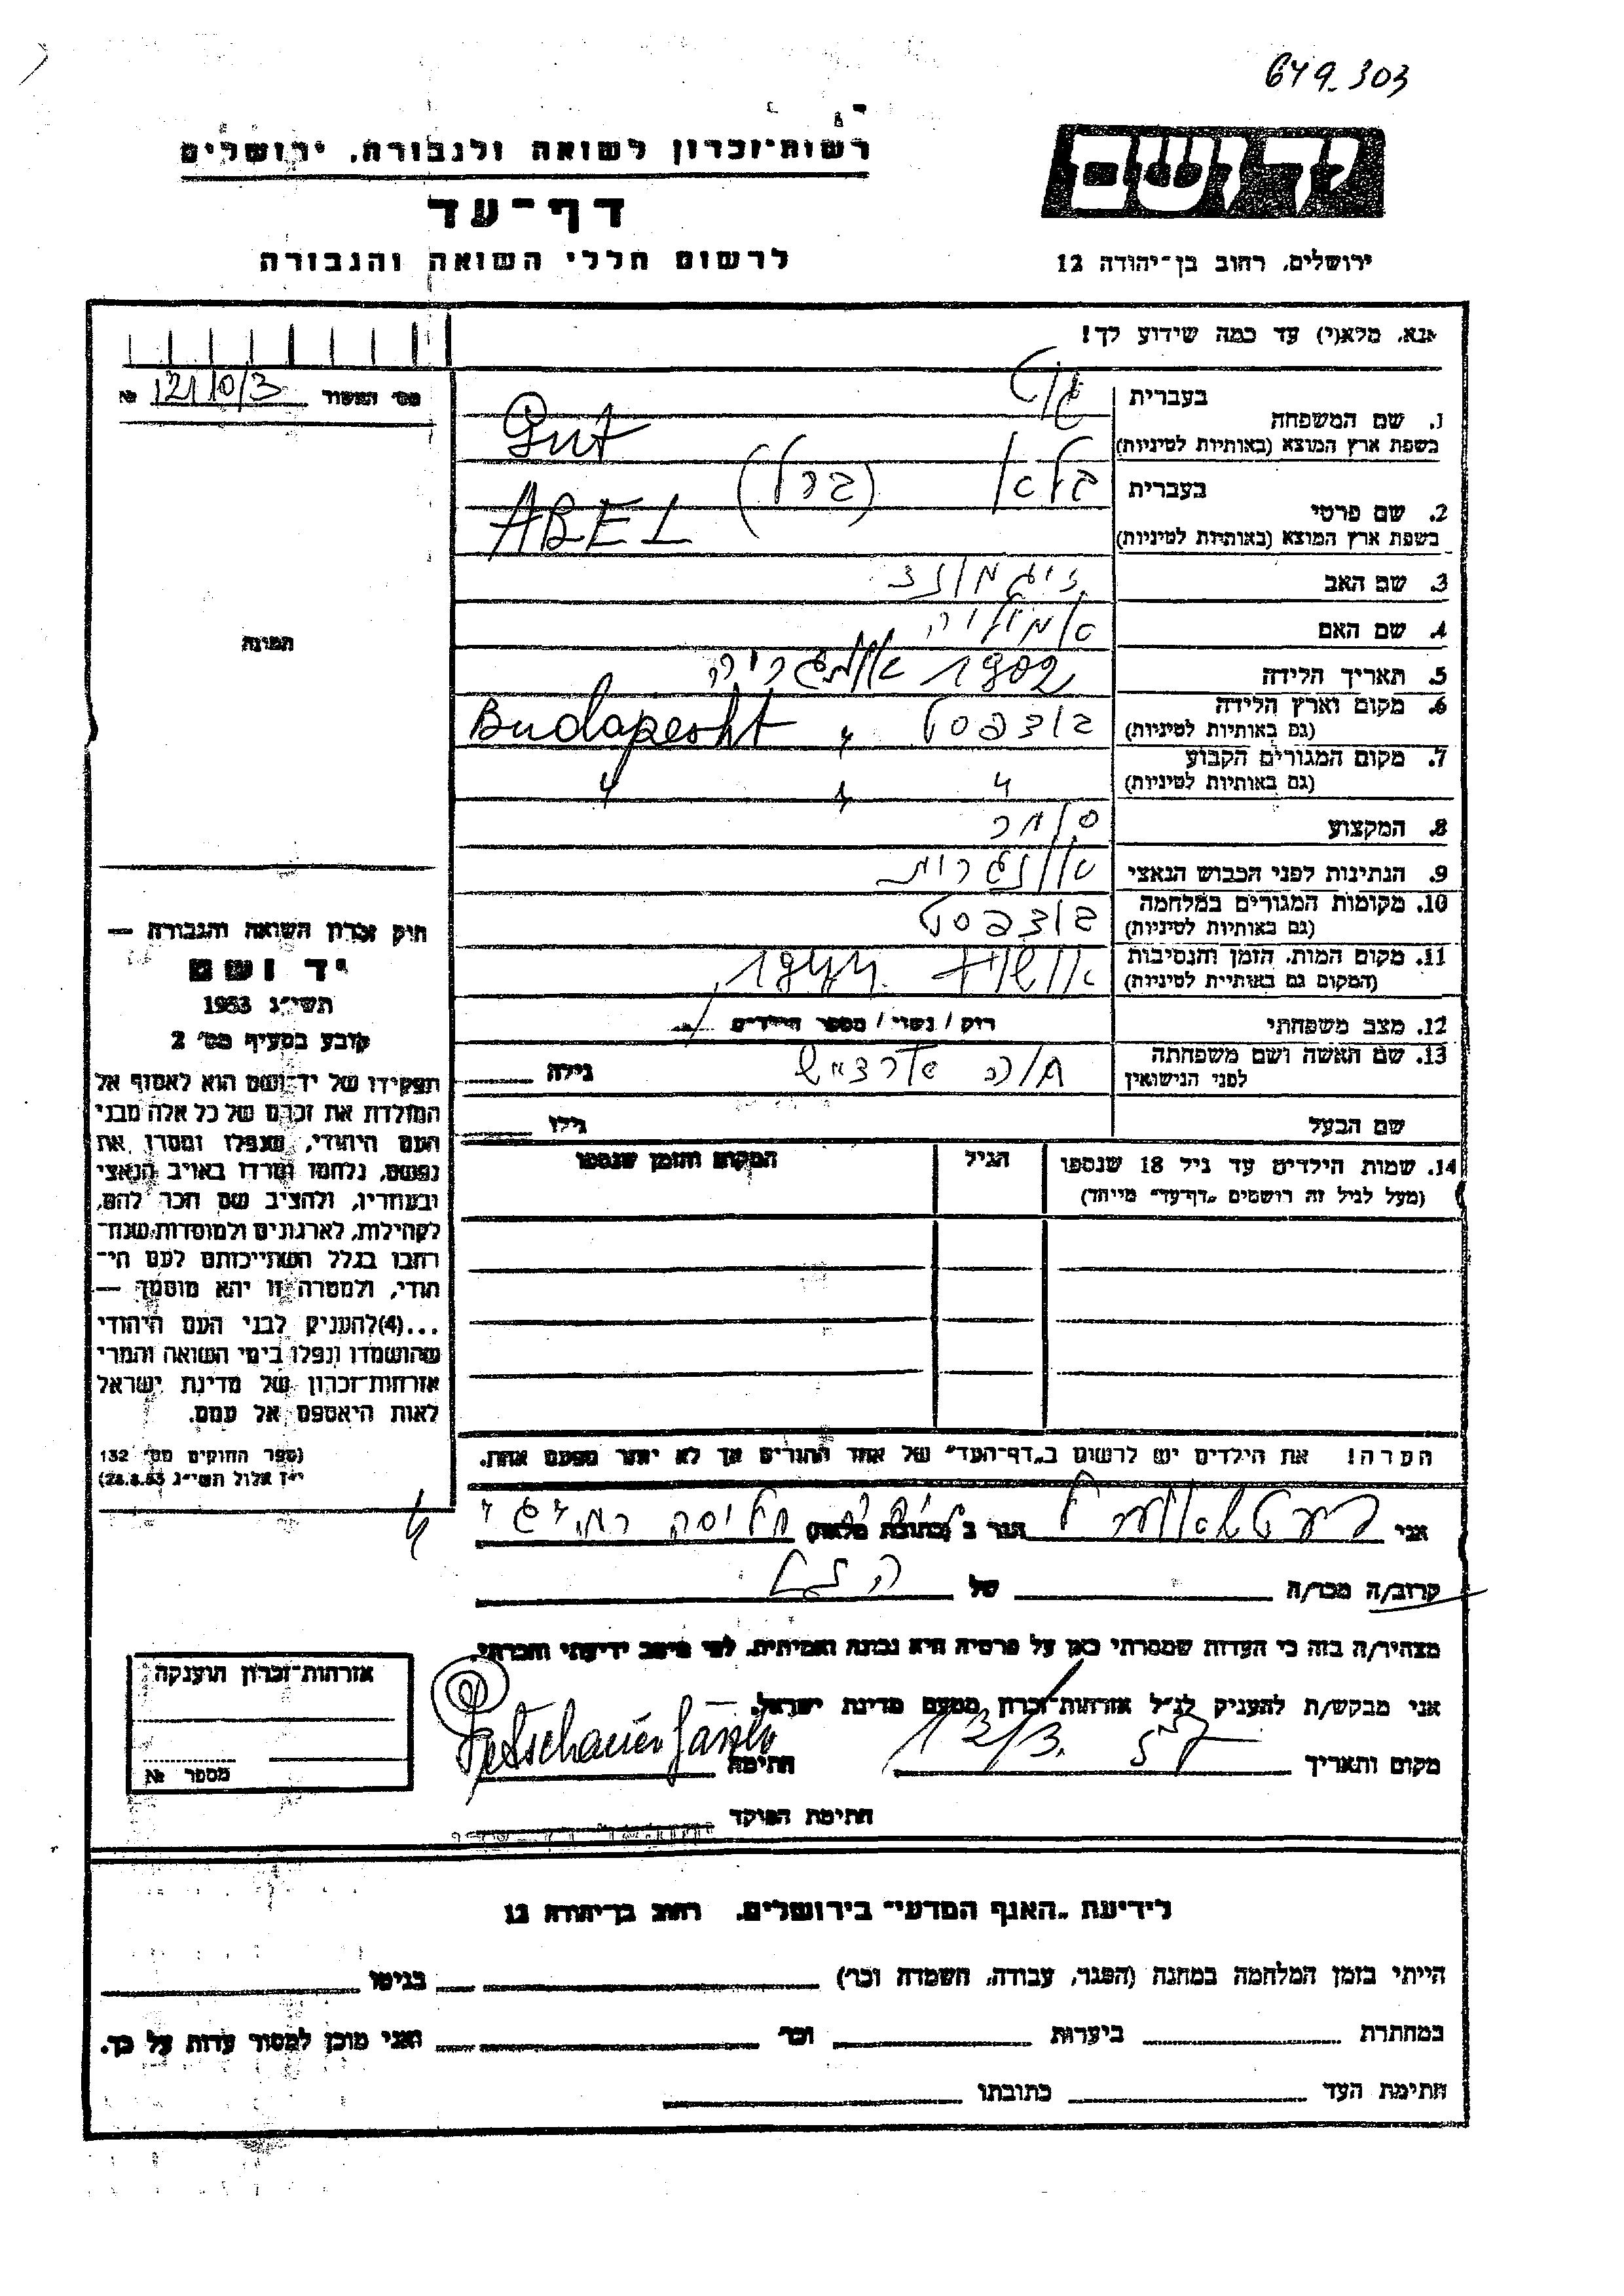 679_303
רשות־זכרון לשואה ולגבורה, ירושלים
דף־עד
לרשום חללי השואה והגבורה
יד ושם
ירושלים, רחוב בן־יהודה 12
אנא, מלא(י) עד כמה שידוע לך!
מס׳ המשור 121/0/3 №
תמונה
1. שם המשפחה
בעברית גוט
בשפת ארץ המוצא (באותיות לטיניות) Gut
2. שם פרטי
בעברית בלא (ברל)
בשפת ארץ המוצא (באותיות לטיניות) ABEL
3. שם האב זיגמונד
4. שם האם
5. תאריך הלידה 1902
6. מקום וארץ הלידה
(גם באותיות לטיניות) בודפסט Budapesht
7. מקום המגורים הקבוע
(גם באותיות לטיניות) " " "
8. המקצוע סוחר
9. הנתינות לפני הכבוש הנאצי
10. מקומות המגורים במלחמה
(גם באותיות לטיניות) בודפסט
11. מקום המות, הזמן והנסיבות
(המקום גם באותיית לטיניות) 1944
12. מצב משפחתי רוק / נשוי / מספר הילדים
13. שם האשה ושם משפחתה
לפני הנישואין גילה
שם הבעל גילו
14. שמות הילדים עד גיל 18 שנספו
(מעל לגיל זה רושמים „דף־עד" מייחד)
הגיל
המקום והזמן שנספו
הערה! את הילדים יש לרשום ב„דף־העד" של אחד ההורים אך לא יותר מפעם אחת.
חוק זכרון השואה והגבורה —
יד ושם
תשי״ג 1953
קובע בסעיף מס׳ 2
תפקידו של יד־ושם הוא לאסוף אל
המולדת את זכרם של כל אלה מבני
העם היהודי, שנפלו ומסרו את
נפשם, נלחמו ומרדו באויב הנאצי
ובעוזריו, ולהציב שם וזכר להם,
לקהילות, לארגונים ולמוסדות שנח־
רבו בגלל השתייכותם לעם הי־
הודי, ולמטרה זו יהא מוסמך —
...(4)להעניק לבני העם היהודי
שהושמדו ונפלו בימי השואה והמרי
אזרחות־זכרון של מדינת ישראל
לאות היאספם אל עמם.
(ספר החוקים מס׳ 132
י״ז אלול תשי״ג 28.8.53)
אני הגר ב (כתובת מלאה) חיפה
קרוב/ה מכר/ה של הנ״ל
מצהיר/ה בזה כי העדות שמסרתי כאן על פרטיה היא נכונה ואמיתית, לפי מיטב ידיעתי והכרתי.
אני מבקש/ת להעניק לנ״ל אזרחות־זכרון מטעם מדינת ישראל.
מקום ותאריך 12/3. 57 חתימה Petschauer
חתימת הפוקד
אזרחות־זכרון הוענקה
מספר №
לידיעת „האגף המדעי־ בירושלים, רחוב בן־יהודה 12
הייתי בזמן המלחמה במחנה (הסגר, עבודה, השמדה וכר׳) בגיטו
במחתרת ביערות וכר׳ והאני מוכן למסור עדות על כך.
חתימת העד כתובתו